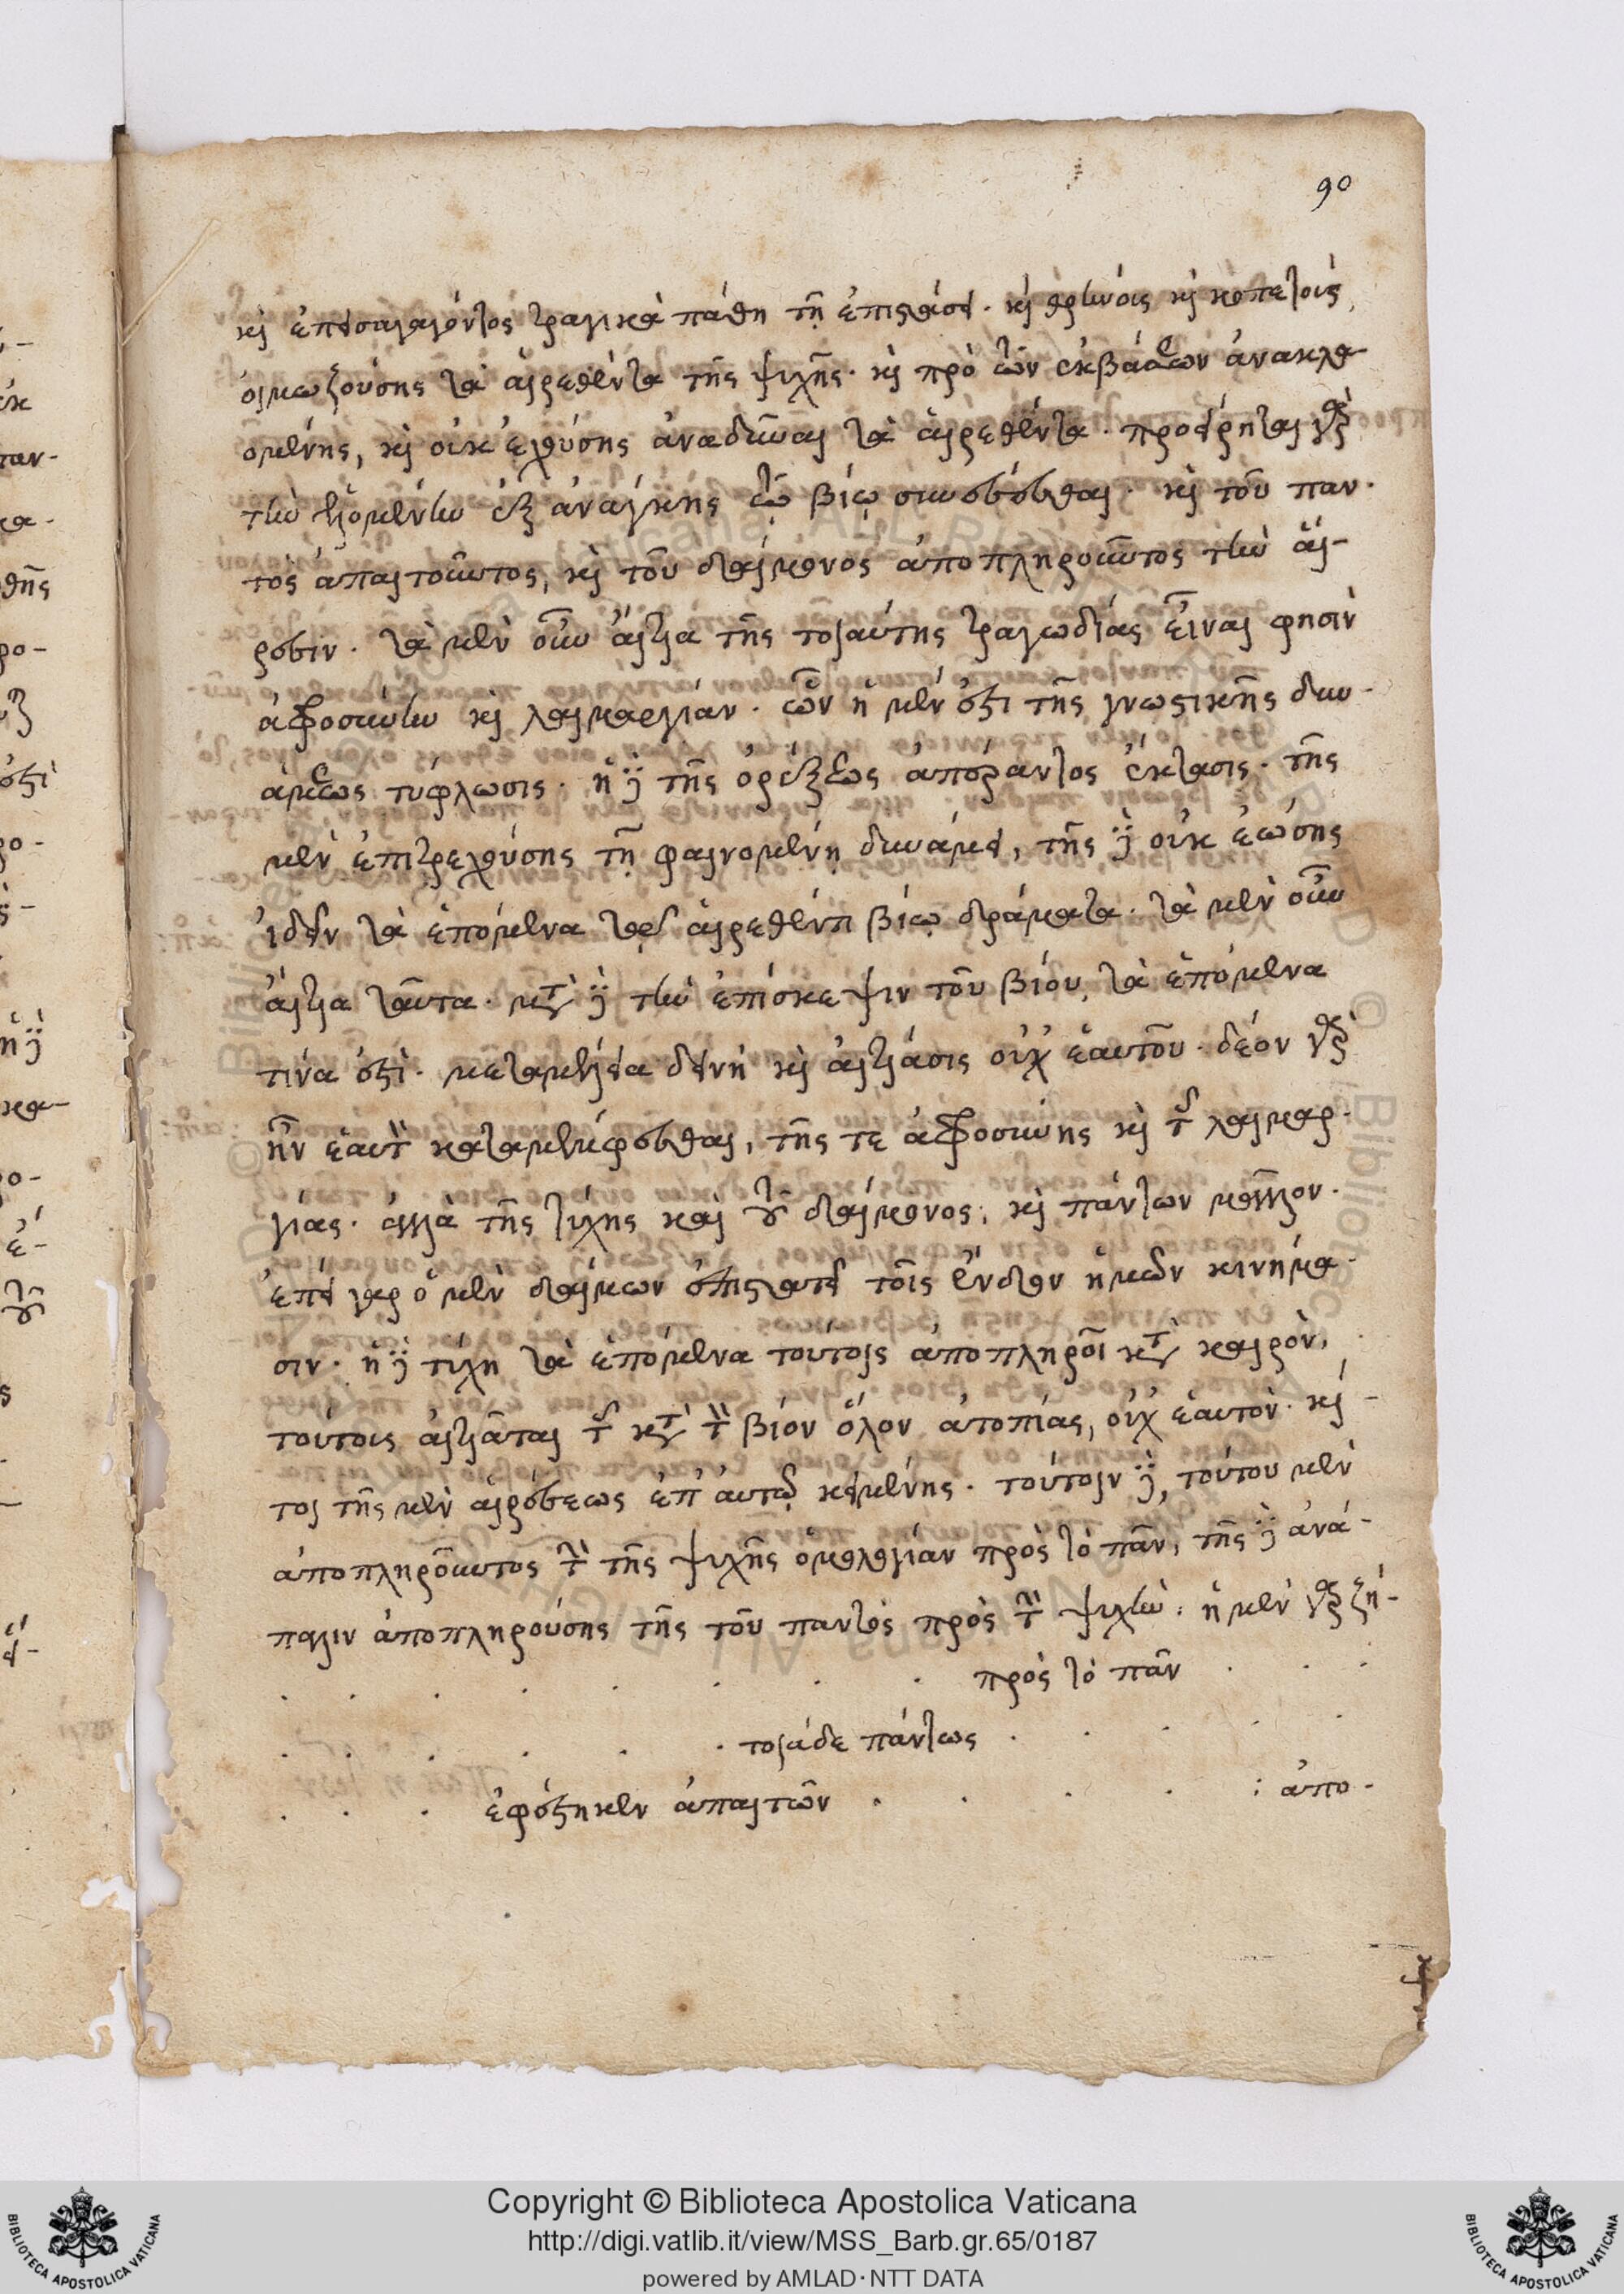 90
καὶ ἐπεισαγαγόντος τραγικὰ πάθη τῇ ἐπιστάσει· καὶ θρήνοις καὶ κοπετοῖς,
οἰμωζούσης τὰ αἱρεθέντα τῆς ψυχῆς· καὶ πρὸ τῶν ἐκβάσεων ἀνακλα
ομένης, καὶ οὐκ ἐχούσης ἀναδῦναι τὰ αἱρεθέντα· προείρηται γὰρ
τὴν ἑλομένην ἐξ ἀνάγκης τῷ βίῳ συνέσεσθαι· καὶ τοῦ παν-
τὸς ἀπαιτοῦντος, καὶ τοῦ δαίμονος ἀποπληροῦντος τὴν αἵ-
ρεσιν· τὰ μὲν οὖν αἴτια τῆς τοιαύτης τραγωδίας εἶναι φησὶν
ἀφροσύνην καὶ λαιμαργίαν· ὧν ἡ μέν ἐστι τῆς γνωστικῆς δυν-
άμεως τύφλωσις· ἡ δὲ τῆς ὀρέξεως ἀπέραντος ἔκτασις· τῆς
μὲν ἐπιτρεχούσης τῇ φαινομένῃ δυνάμει, τῆς δὲ οὐκ ἐώσης
ἰδεῖν τὰ ἑπόμενα τῷ αἱρεθέντι βίῳ δράματα· τὰ μὲν οὖν
αἴτια ταῦτα· μετὰ δὲ τὴν ἐπίσκεψιν τοῦ βίου, τὰ ἑπόμενα
τίνα ἐστί· μεταμέλεια δεινὴ καὶ αἰτίασις οὐχ ἑαυτοῦ· δέον γὰρ
ἦν ἑαυτὴν καταμέμφεσθαι, τῆς τε ἀφροσύνης καὶ τῆς λαιμαρ-
γίας· ἀλλὰ τῆς τύχης καὶ τοῦ δαίμονος, καὶ πάντων μᾶλλον·
ἐπεὶ γὰρ ὁ μὲν δαίμων ἐπιστατεῖ τοῖς ἔνδον ἡμῶν κινήμα-
σιν· ἡ δὲ τύχη τὰ ἑπόμενα τούτοις ἀποπληροῖ κατὰ καιρὸν,
τούτοις αἰτιᾶται τῆς κατὰ τὸν βίον ὅλον ἀτοπίας, οὐχ ἑαυτόν· καί-
τοι τῆς μὲν αἱρέσεως ἐπ' αὐτῷ κειμένης· τούτοιν δὲ, τούτου μὲν
ἀποπληροῦντος τὴν τῆς ψυχῆς ὁμολογίαν πρὸς τὸ πᾶν, τῆς δὲ ἀνά-
παλιν ἀποπληρούσης τῆς τοῦ παντὸς πρὸς τὴν ψυχὴν· ἡ μὲν γὰρ ζη-
. . . . . . . . πρὸς τὸ πᾶν . . .
. . . . . . τοιάδε πάντως . . . . .
. . . ἐφέστηκεν ἀπαιτῶν . . . . : ἀπο-
Copyright © Biblioteca Apostolica Vaticana
http://digi.vatlib.it/view/MSS_Barb.gr.65/0187
powered by AMLAD·NTT DATA